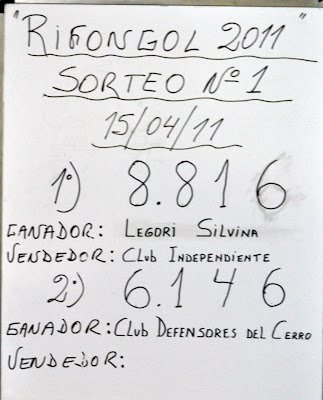 "RIFONGOL 2011"
SORTEO Nº 1
15/04/11
1º) 8.816
GANADOR: LEGORI SILVINA
VENDEDOR: Club INDEPENDIENTE
2º) 6.146
GANADOR: Club DEFENSORES DEL CERRO
VENDEDOR: